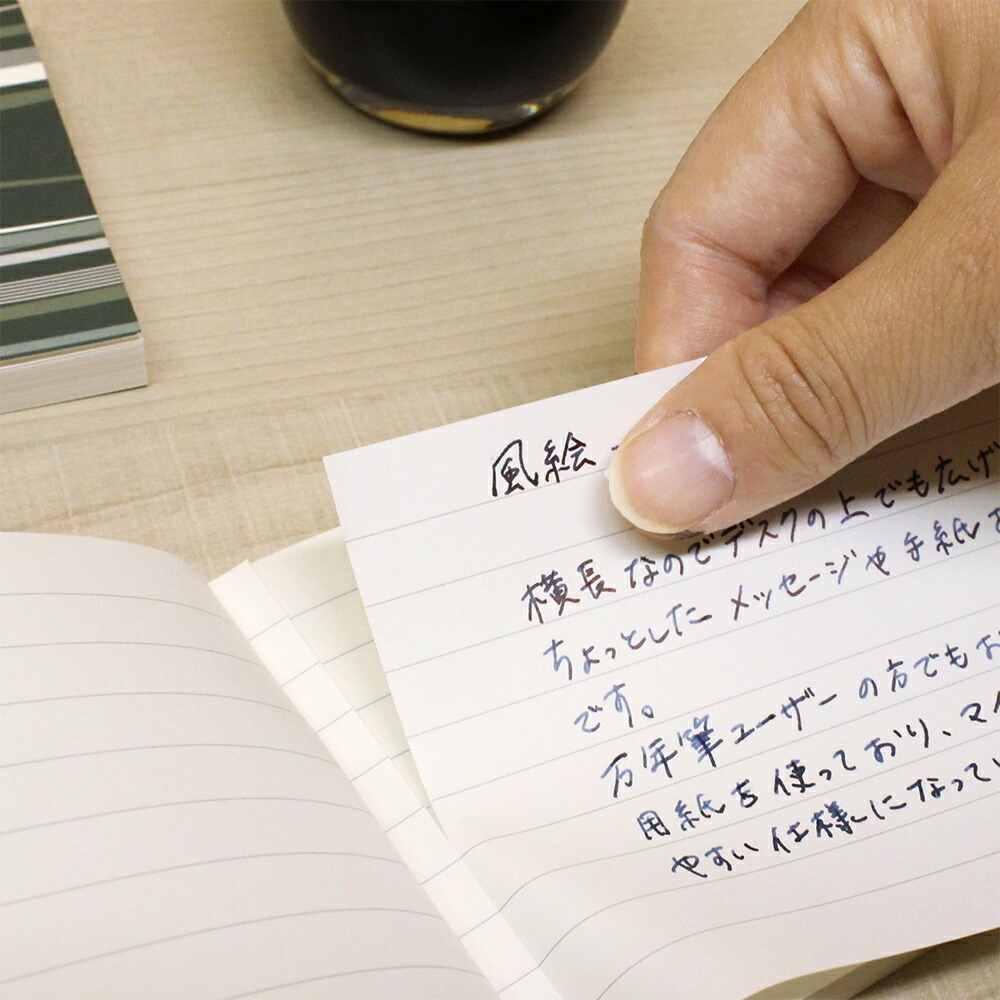 風絵
横長なのでデスクの上でも広げ
ちょっとした メッセージや手紙
です。
万年筆ユーザーの方でもお
用紙を使っており、マイ
やすい仕様になってい